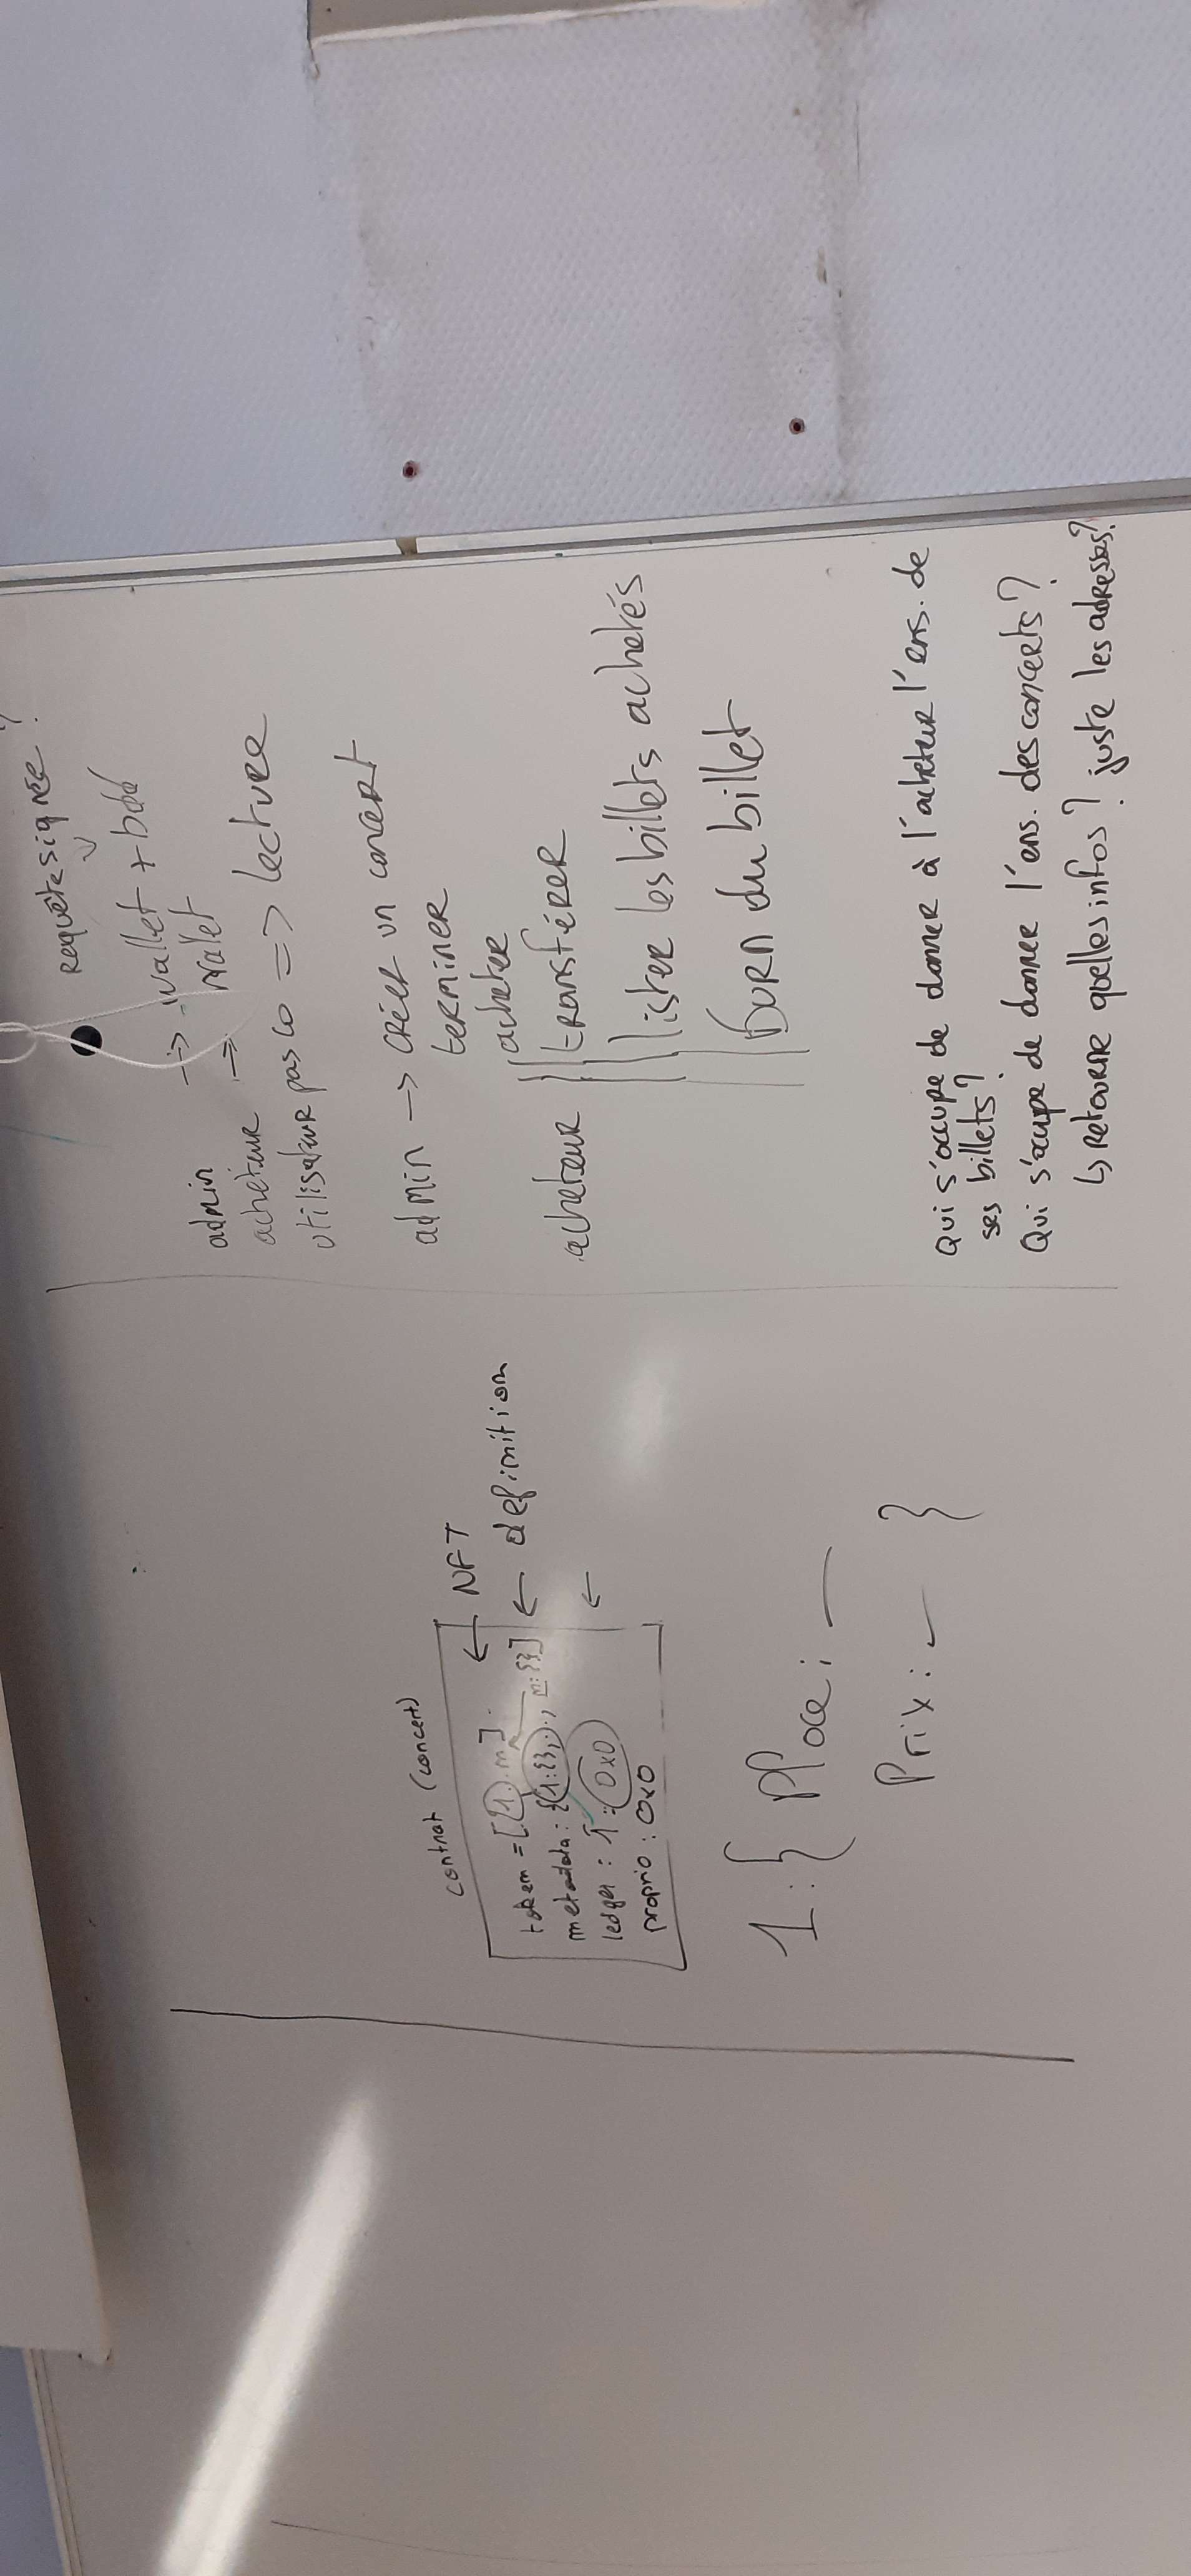 contrat (concert)
token = [1..m]. ← NFT
metadata: {1:{},..., m:{}] ← definition
ledger : 1 : 0x0 ←
proprio : 0x0
1 : { Place : —
Prix : — }
requête signée ?
admin → wallet + bdd
acheteur → wallet
utilisateur pas co => lecture
admin → créer un concert
terminer
acheteur acheter
transférer
lister les billets achetés
burn du billet
Qui s'occupe de donner à l'acheteur l'ens. de
ses billets?
Qui s'occupe de donner l'ens. des concerts?
↳ Retourne quelles infos? juste les adresses?